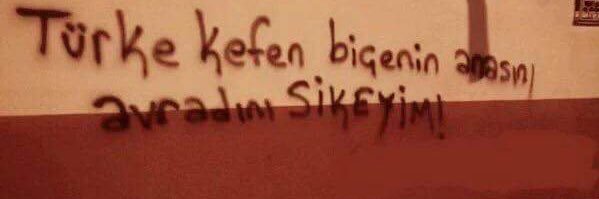 Türke kefen biçenin anasını
avradını SİKEYİM!